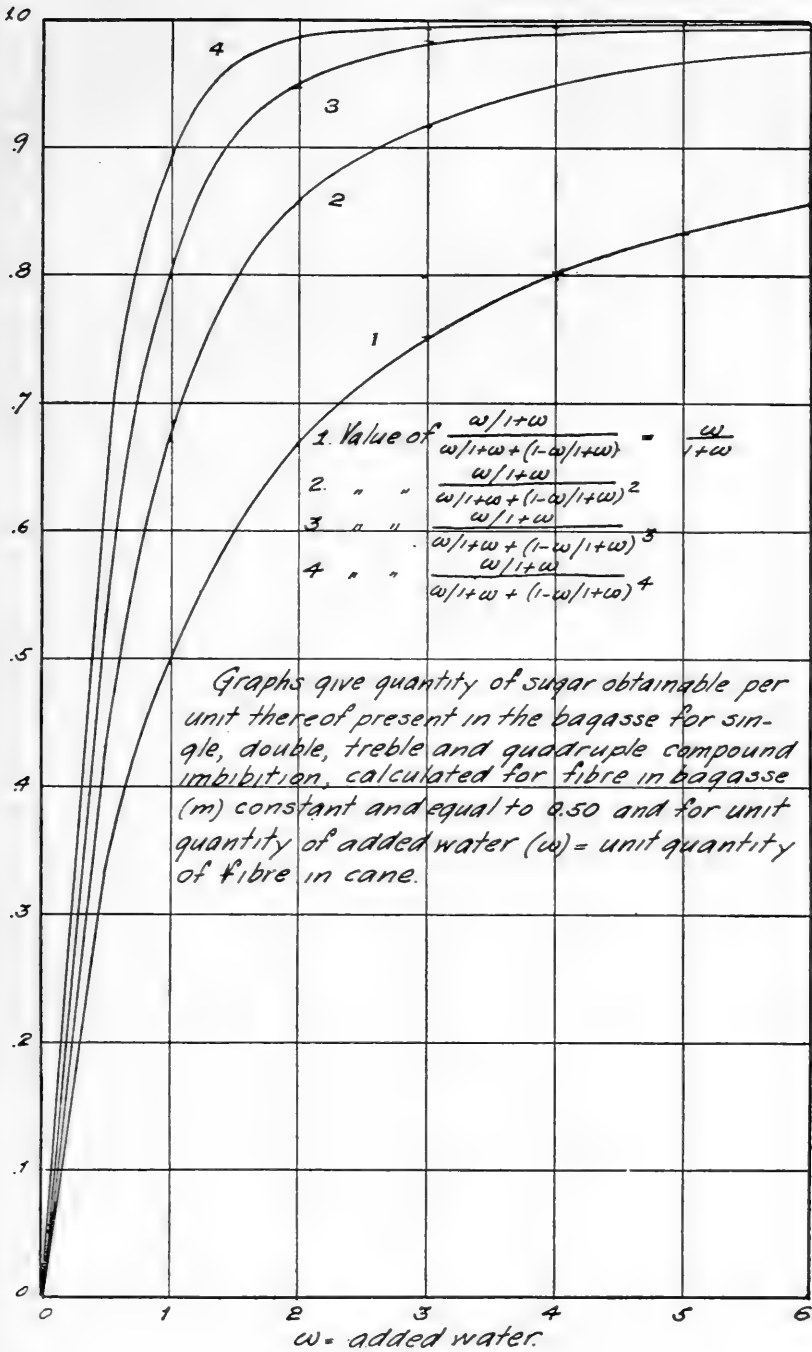 1.0
4
3
.9
2
.8
1
.7
1. Value of ω/1+ω / ω/1+ω + (1-ω/1+ω) = ω / 1+ω
2. " " ω/1+ω / ω/1+ω + (1-ω/1+ω)2
3 " " ω/1+ω / ω/1+ω + (1-ω/1+ω)3
4 " " ω/1+ω / ω/1+ω + (1-ω/1+ω)4
.6
.5
Graphs give quantity of sugar obtainable per
unit thereof present in the bagasse for sin-
gle, double, treble and quadruple compound
imbibition, calculated for fibre in bagasse
.4
(m) constant and equal to 0.50 and for unit
quantity of added water (ω) = unit quantity
of fibre in cane.
.3
.2
.1
0
0 1 2 3 4 5 6
ω = added water.